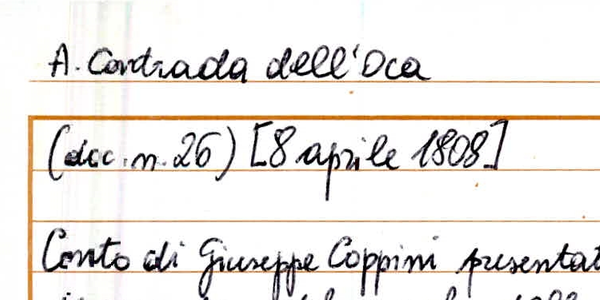 A. Contrada dell'Oca
(doc. n. 26) [8 aprile 1808]
Conto di Giuseppe Coppini presentat